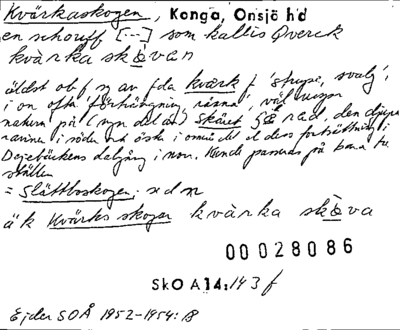 Kvärkaskogen, Konga, Onsjö hd
en schouff [---] som kallis Qverck
kvàrka skòvan
äldst obf ng av fda kvärk f 'strupe, svalg',
i on ofta 'förträngning, ränna', väl
naturn på (nyn det an) Skäret §8 rad, den djupa
ravinen i söder och öster i området el dess fortsättning i
Dejebäckens dalgång i norr. Kunde passeras på bara tre
ställen
= Slättboskogen, s d n
äk Kvärkes skogar kvàrka skòva
00028086
SkO A14:143 f
Ejder SOÅ 1952-1954:18